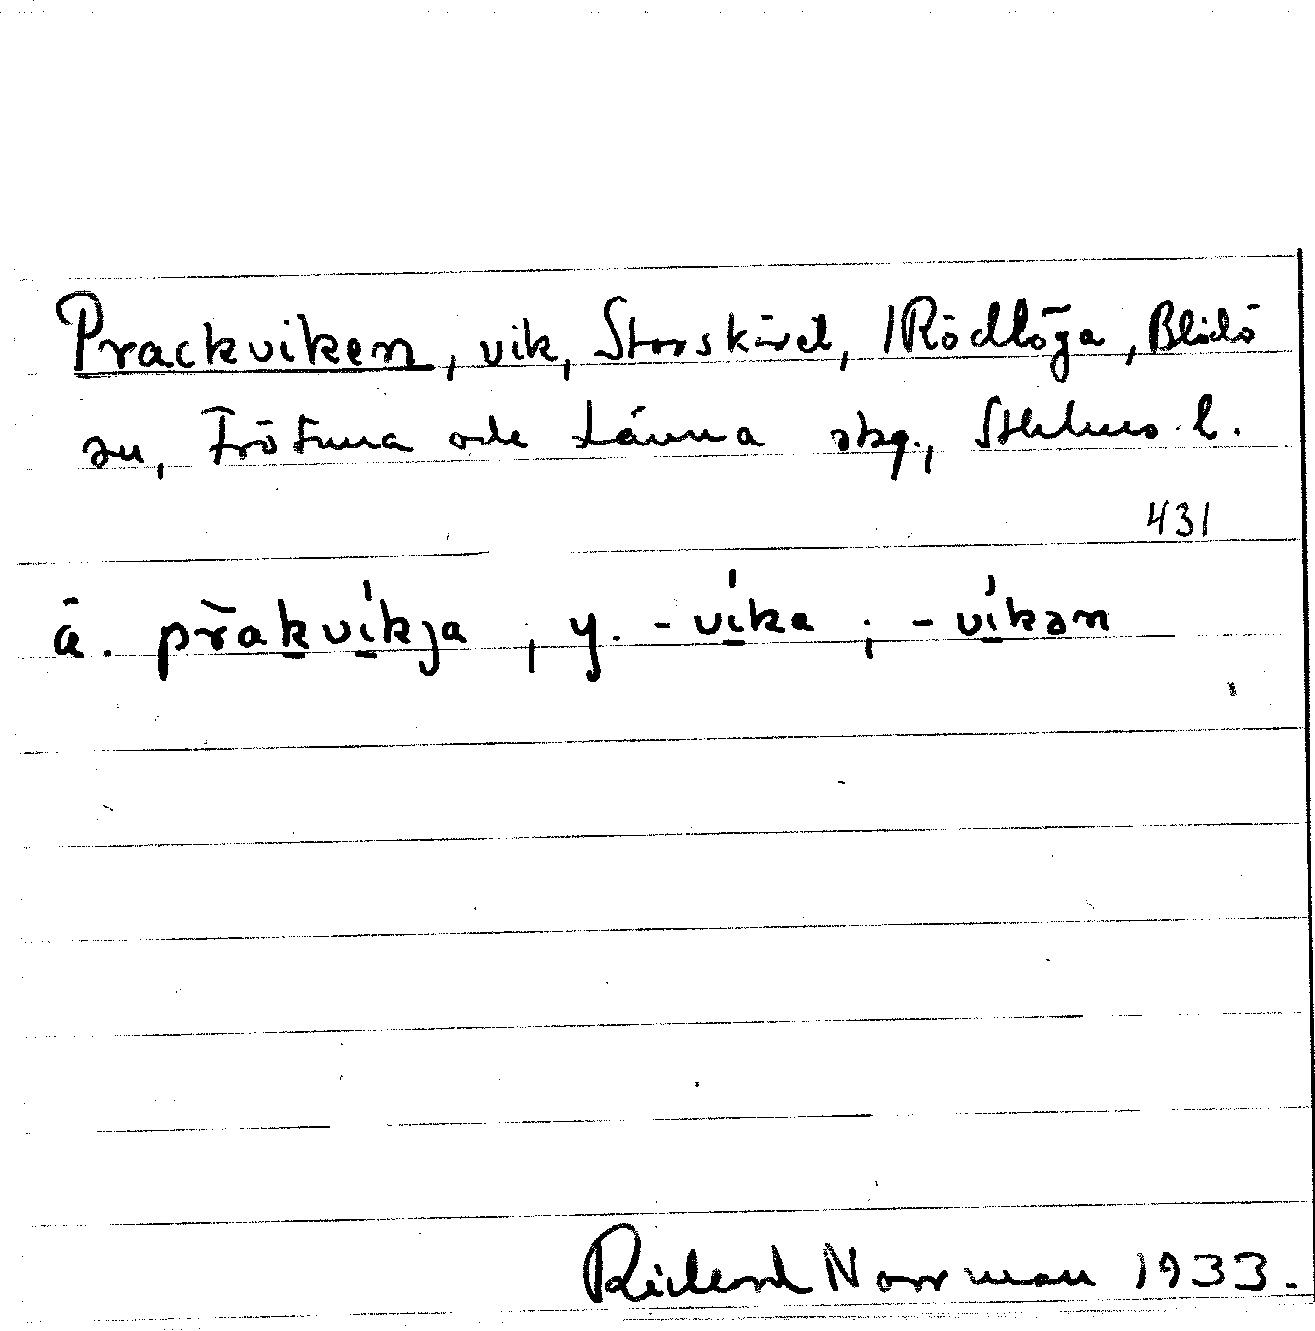 Prackviken, vik, Storskäret, /Rödlöga, Blidö
sn, Frötuna och Länna skg., Sthlms l.
431
ä. prakvíkja, y. -víka ; -víkən
Rickard Norrman 1933.